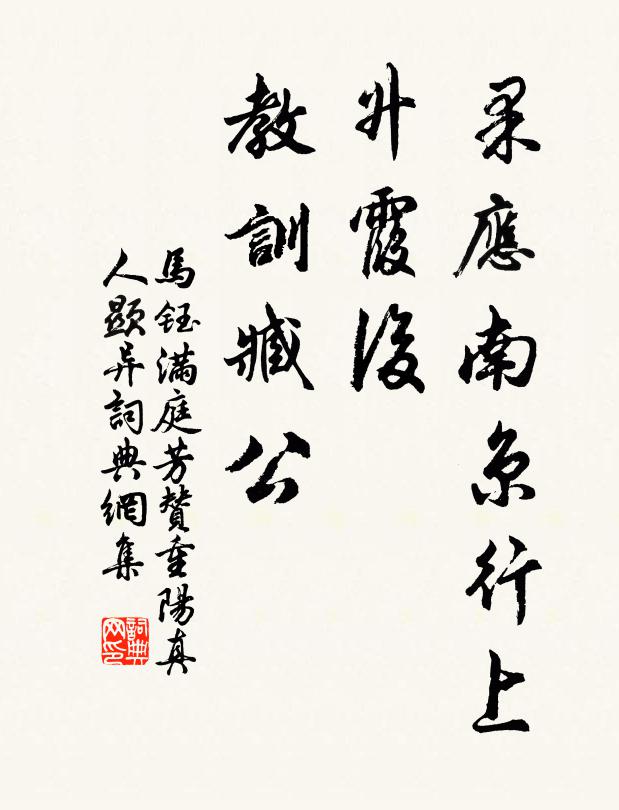 果應南京行上
升霞後
教訓臧公
馬鈺滿庭芳贊重陽真
人顯异詞典網集
詞典
网印